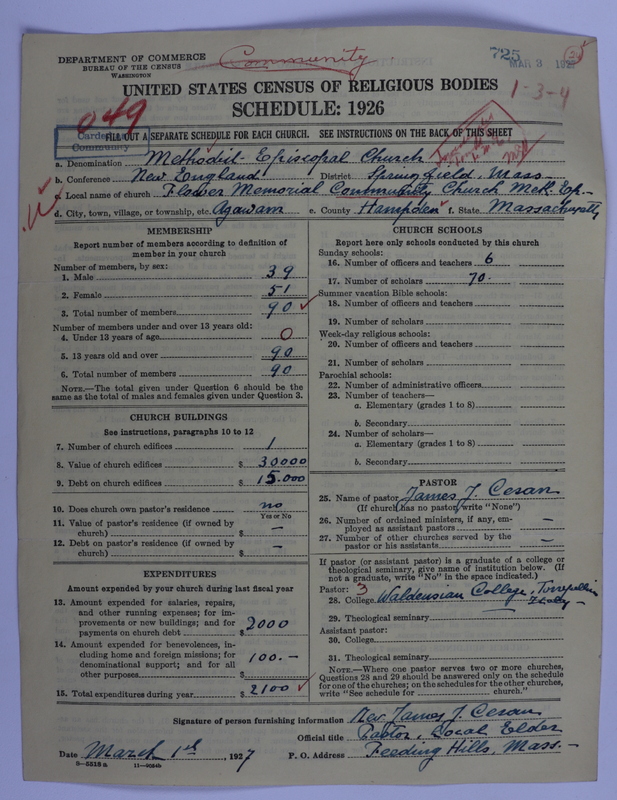 DEPARTMENT OF COMMERCE
BUREAU OF THE CENSUS
WASHINGTON
Community
725
MAR 3
UNITED STATES CENSUS OF RELIGIOUS BODIES
1-3-4
SCHEDULE: 1926
049
FILL OUT A SEPARATE SCHEDULE FOR EACH CHURCH. SEE INSTRUCTIONS ON THE BACK OF THIS SHEET
Community
a. Denomination Methodist Episcopal Church
b. Conference New England District Springfield, Mass.
c. Local name of church Flower Memorial Community Church Meth. Ep.
d. City, town, village, or township, etc. Agawam e. County Hampden f. State Massachusetts
MEMBERSHIP
Report number of members according to definition of
member in your church
Number of members, by sex:
1. Male 39
2. Female 51
3. Total number of members 90
Number of members under and over 13 years old:
4. Under 13 years of age 0
5. 13 years old and over 90
6. Total number of members 90
NOTE.—The total given under Question 6 should be the
same as the total of males and females given under Question 3.
CHURCH BUILDINGS
See instructions, paragraphs 10 to 12
7. Number of church edifices 1
8. Value of church edifices $ 30000
9. Debt on church edifices $ 15.000
10. Does church own pastor's residence no
Yes or No
11. Value of pastor's residence (if owned by
church) $ —
12. Debt on pastor's residence (if owned by
church) $ —
EXPENDITURES
Amount expended by your church during last fiscal year
13. Amount expended for salaries, repairs,
and other running expenses; for im-
provements or new buildings; and for
payments on church debt $ 2000
14. Amount expended for benevolences, in-
cluding home and foreign missions; for
denominational support; and for all
other purposes $ 100.—
15. Total expenditures during year $ 2100
CHURCH SCHOOLS
Report here only schools conducted by this church
Sunday schools:
16. Number of officers and teachers 6
17. Number of scholars 70
Summer vacation Bible schools:
18. Number of officers and teachers
19. Number of scholars
Week-day religious schools:
20. Number of officers and teachers
21. Number of scholars
Parochial schools:
22. Number of administrative officers
23. Number of teachers—
a. Elementary (grades 1 to 8)
b. Secondary
24. Number of scholars—
a. Elementary (grades 1 to 8)
b. Secondary
PASTOR
25. Name of pastor James J. Cesan
(If church has no pastor, write "None")
26. Number of ordained ministers, if any, em-
ployed as assistant pastors —
27. Number of other churches served by the
pastor or his assistants —
If pastor (or assistant pastor) is a graduate of a college or
theological seminary, give name of institution below. (If
not a graduate, write "No" in the space indicated.)
Pastor: 3
28. College Waldensian College, Torrepellice
Italy
29. Theological seminary
Assistant pastor:
30. College
31. Theological seminary
NOTE.—Where one pastor serves two or more churches,
Questions 28 and 29 should be answered only on the schedule
for one of the churches; on the schedules for the other churches,
write "See schedule for church."
Signature of person furnishing information Rev. James J. Cesan
Official title Pastor, Local Elder
Date March 1st, 1927 P. O. Address Feeding Hills, Mass.
8—5518 a 11—9034b